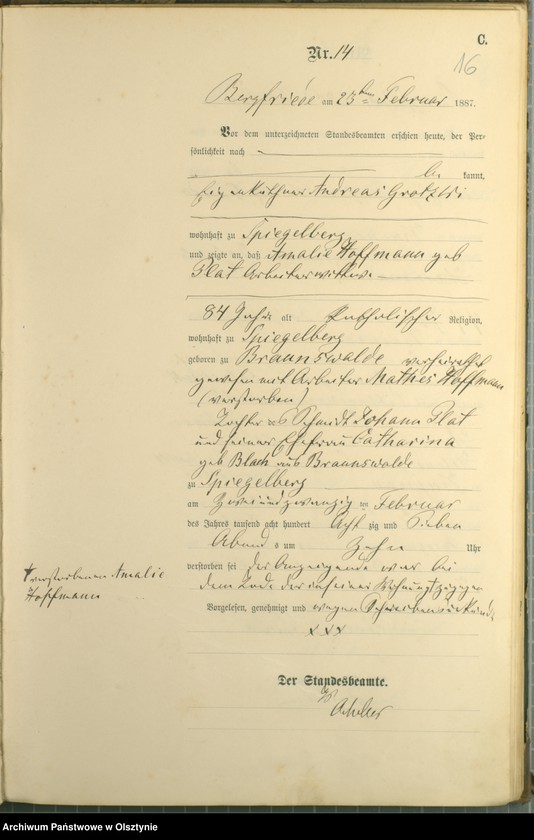 C.
Nr. 14
16
Bergfriede am 23ten Februar 1887.
Vor dem unterzeichneten Standesbeamten erschien heute, der Per-
sönlichkeit nach
be kannt,
Eigenkäthner Andreas
wohnhaft zu Spiegelberg
und zeigte an, daß Amalie Hoffmann geb
Plat Arbeiterwittwe
84 Jahre alt Katholischer Religion,
wohnhaft zu Spiegelberg
geboren zu Braunswalde verheirathet
gewesen mit Arbeiter Mathes Hoffmann
(verstorben)
Tochter des Schmidt Johann Plat
und seiner Ehefrau Catharina
geb Blach aus Braunswalde
zu Spiegelberg
am zweiundzwanzig ten Februar
des Jahres tausend acht hundert Acht zig und Sieben
Abend s um Zehn Uhr
verstorben sei der Anzeigende war bei
dem Tode der in seiner Wohnung zugegen
† verstorbenen Amalie
Hoffmann
Vorgelesen, genehmigt und wegen Schreibensunkunde
x x x
Der Standesbeamte.
Archiwum Państwowe w Olsztynie